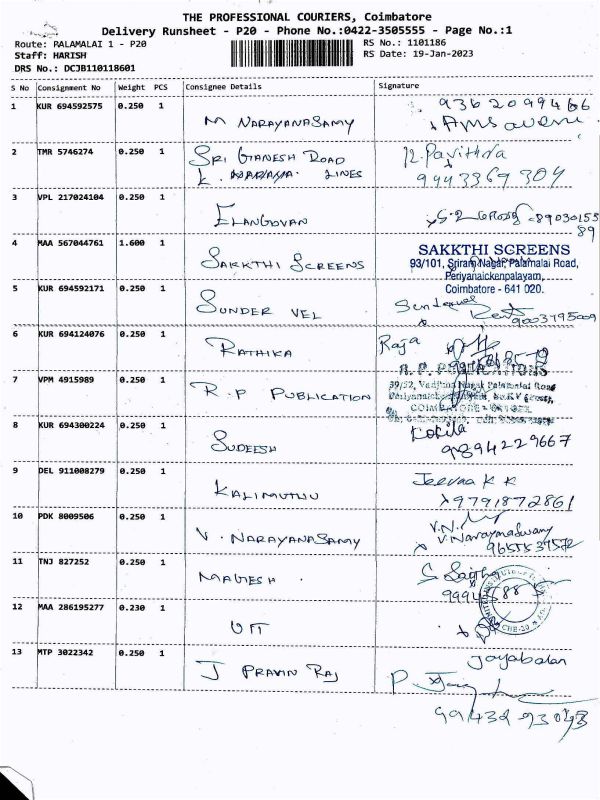 THE PROFESSIONAL COURIERS, Coimbatore
Delivery Runsheet - P20 - Phone No.:0422-3505555 - Page No.:1
Route: PALAMALAI 1 - P20
Staff: HARISH
DRS No.: DCJB110118601
RS No.: 1101186
RS Date: 19-Jan-2023
S No Consignment No Weight PCS Consignee Details Signature
1 KUR 694592575 0.250 1 M NARAYANASAMY 9362099466
2 TMR 5746274 0.250 1 SRI GANESH ROAD LINES R. Pavithra
9443369304
3 VPL 217024104 0.250 1 ELANGOVAN 89030155
89
4 MAA 567044761 1.600 1 SAKKTHI SCREENS
SAKKTHI SCREENS
93/101, Sriram Nagar, Palamalai Road,
Periyanaickenpalayam,
Coimbatore - 641 020.
5 KUR 694592171 0.250 1 SUNDER VEL
6 KUR 694124076 0.250 1 RATHIKA Raja
7 VPM 4915989 0.250 1 R.P PUBLICATION
R.P. PUBLICATIONS
8 KUR 694300224 0.250 1 SUDEESH Kokila
9894229667
9 DEL 911008279 0.250 1 KALIMUTHU Jeevaa K K
9791872861
10 PDK 8009506 0.250 1 V. NARAYANASAMY V.N.
V. Narayanaswamy
11 TNJ 827252 0.250 1 MAGESH
12 MAA 286195277 0.230 1 UTT
13 MTP 3022342 0.250 1 J PRAVIN RAJ Jayabalan
P.